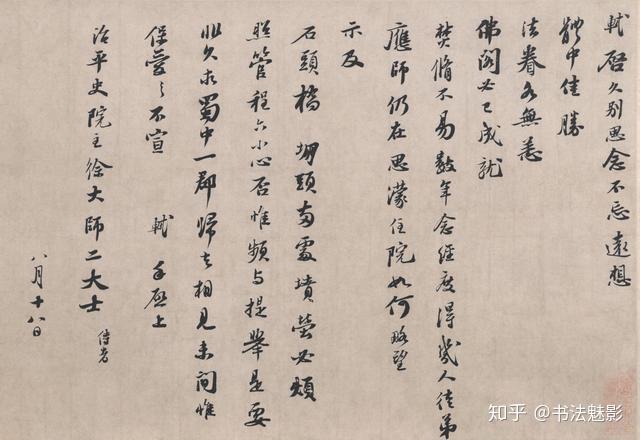 軾啓久別思念不忘遠想
體中佳勝
法眷各無恙
佛閣必已成就
焚脩不易數年念經度得幾人徒弟
應師仍在思濛住院如何略望
示及
石頭橋堋頭兩處墳塋必煩
照管程六小心否惟頻与提舉是要
非久求蜀中一郡歸去相見未間惟
保愛之不宣 軾手啓上
治平史院主徐大師二大士 侍者
八月十八日
知乎 @书法魅影